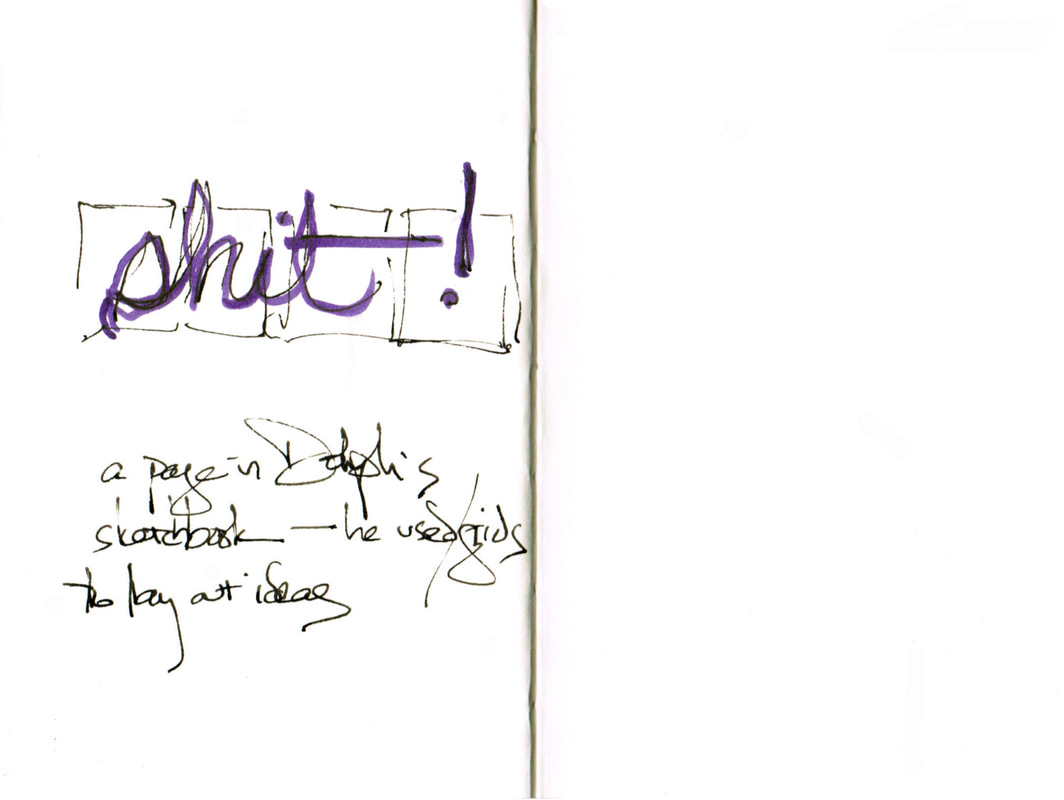 shit!
a page in Dolph's
sketchbook — he used grids
to lay out ideas